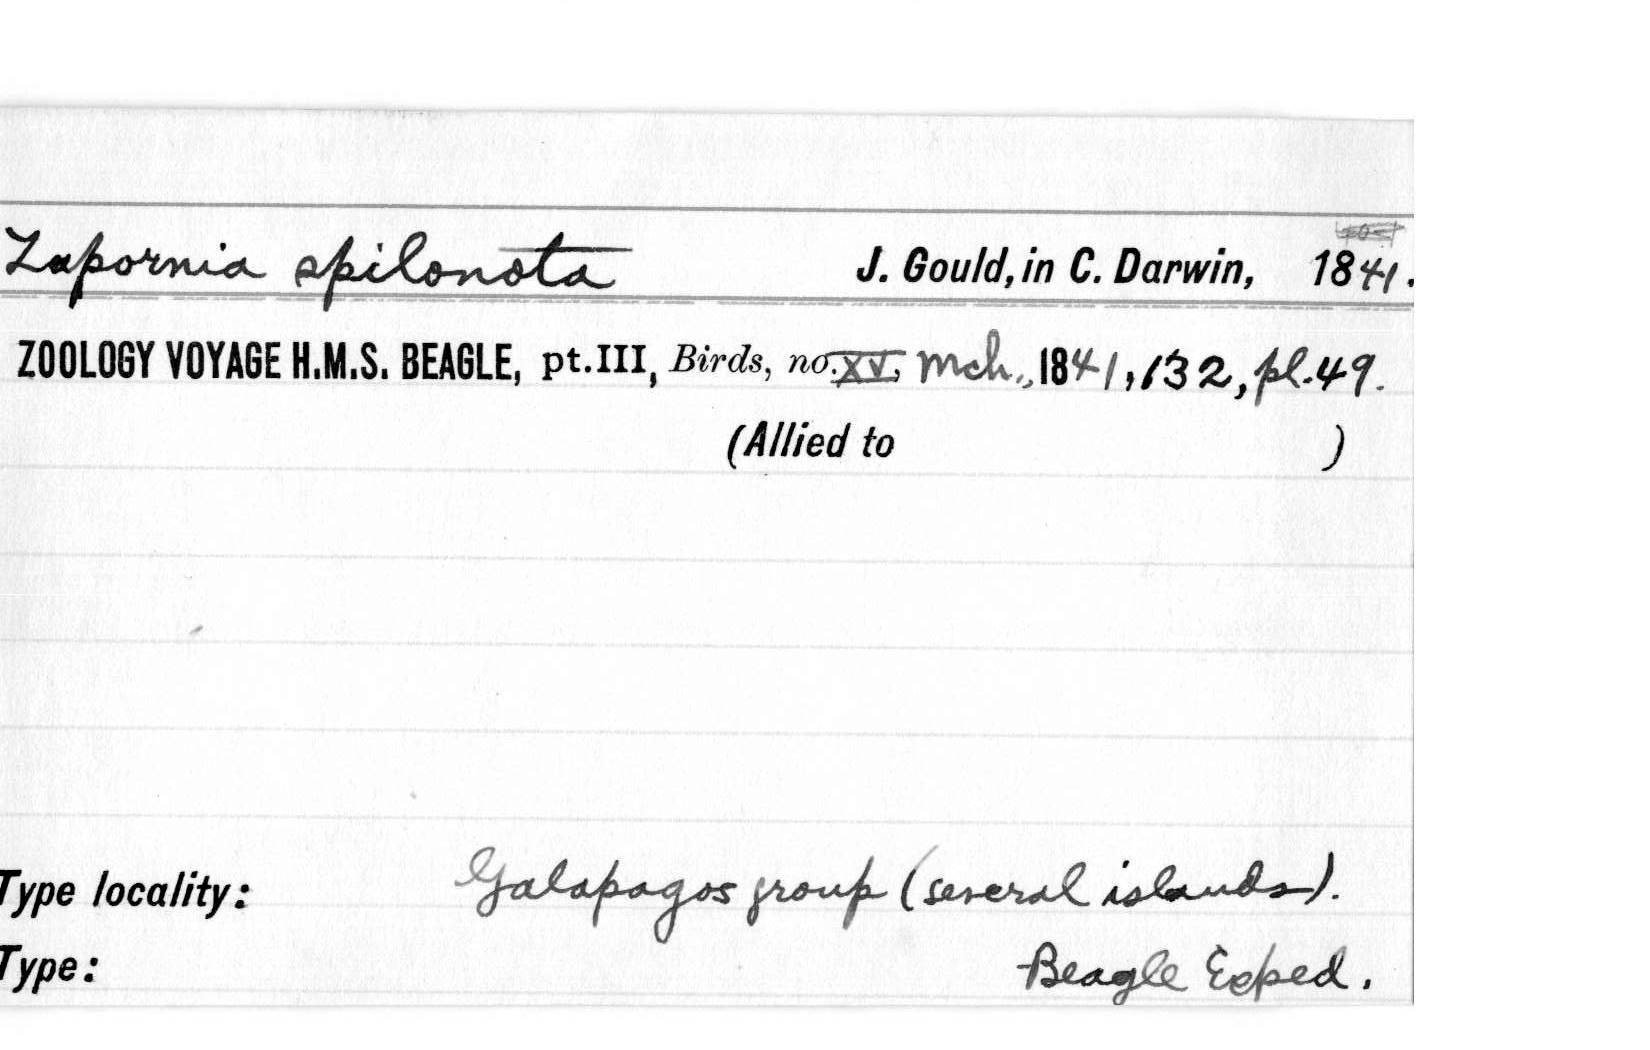 Zapornia spilonota J. Gould, in C. Darwin, 1841.
ZOOLOGY VOYAGE H.M.S. BEAGLE, pt.III, Birds, no.XV, Mch., 1841, 132, pl.49.
(Allied to )
Type locality: Galapagos group (several islands).
Type: Beagle Exped.